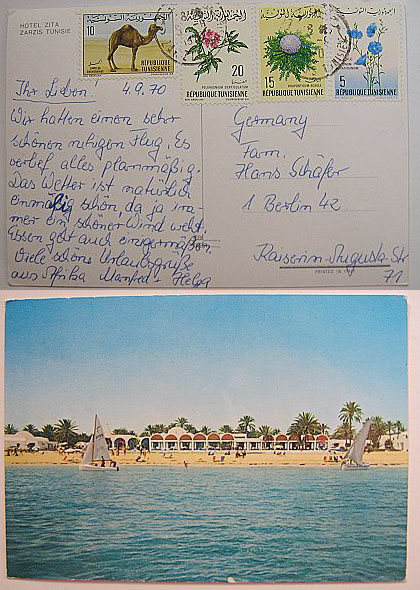 HOTEL ZITA
ZARZIS TUNISIE
10
RÉPUBLIQUE TUNISIENNE
20
RÉPUBLIQUE TUNISIENNE
15
RÉPUBLIQUE TUNISIENNE
5
RÉPUBLIQUE TUNISIENNE
Ihr Lieben! 4.9.70
Wir hatten einen sehr
schönen ruhigen Flug. Es
verlief alles planmäßig.
Das Wetter ist natürlich
einmalig schön, da ja im-
mer ein schöner Wind weht.
Essen geht auch einigermaßen.
Viele schöne Urlaubsgrüße
aus Afrika Manfred + Helga
Germany
Fam.
Hans Schäfer
1 Berlin 42
Kaiserin-Augusta-Str
71
PRINTED IN